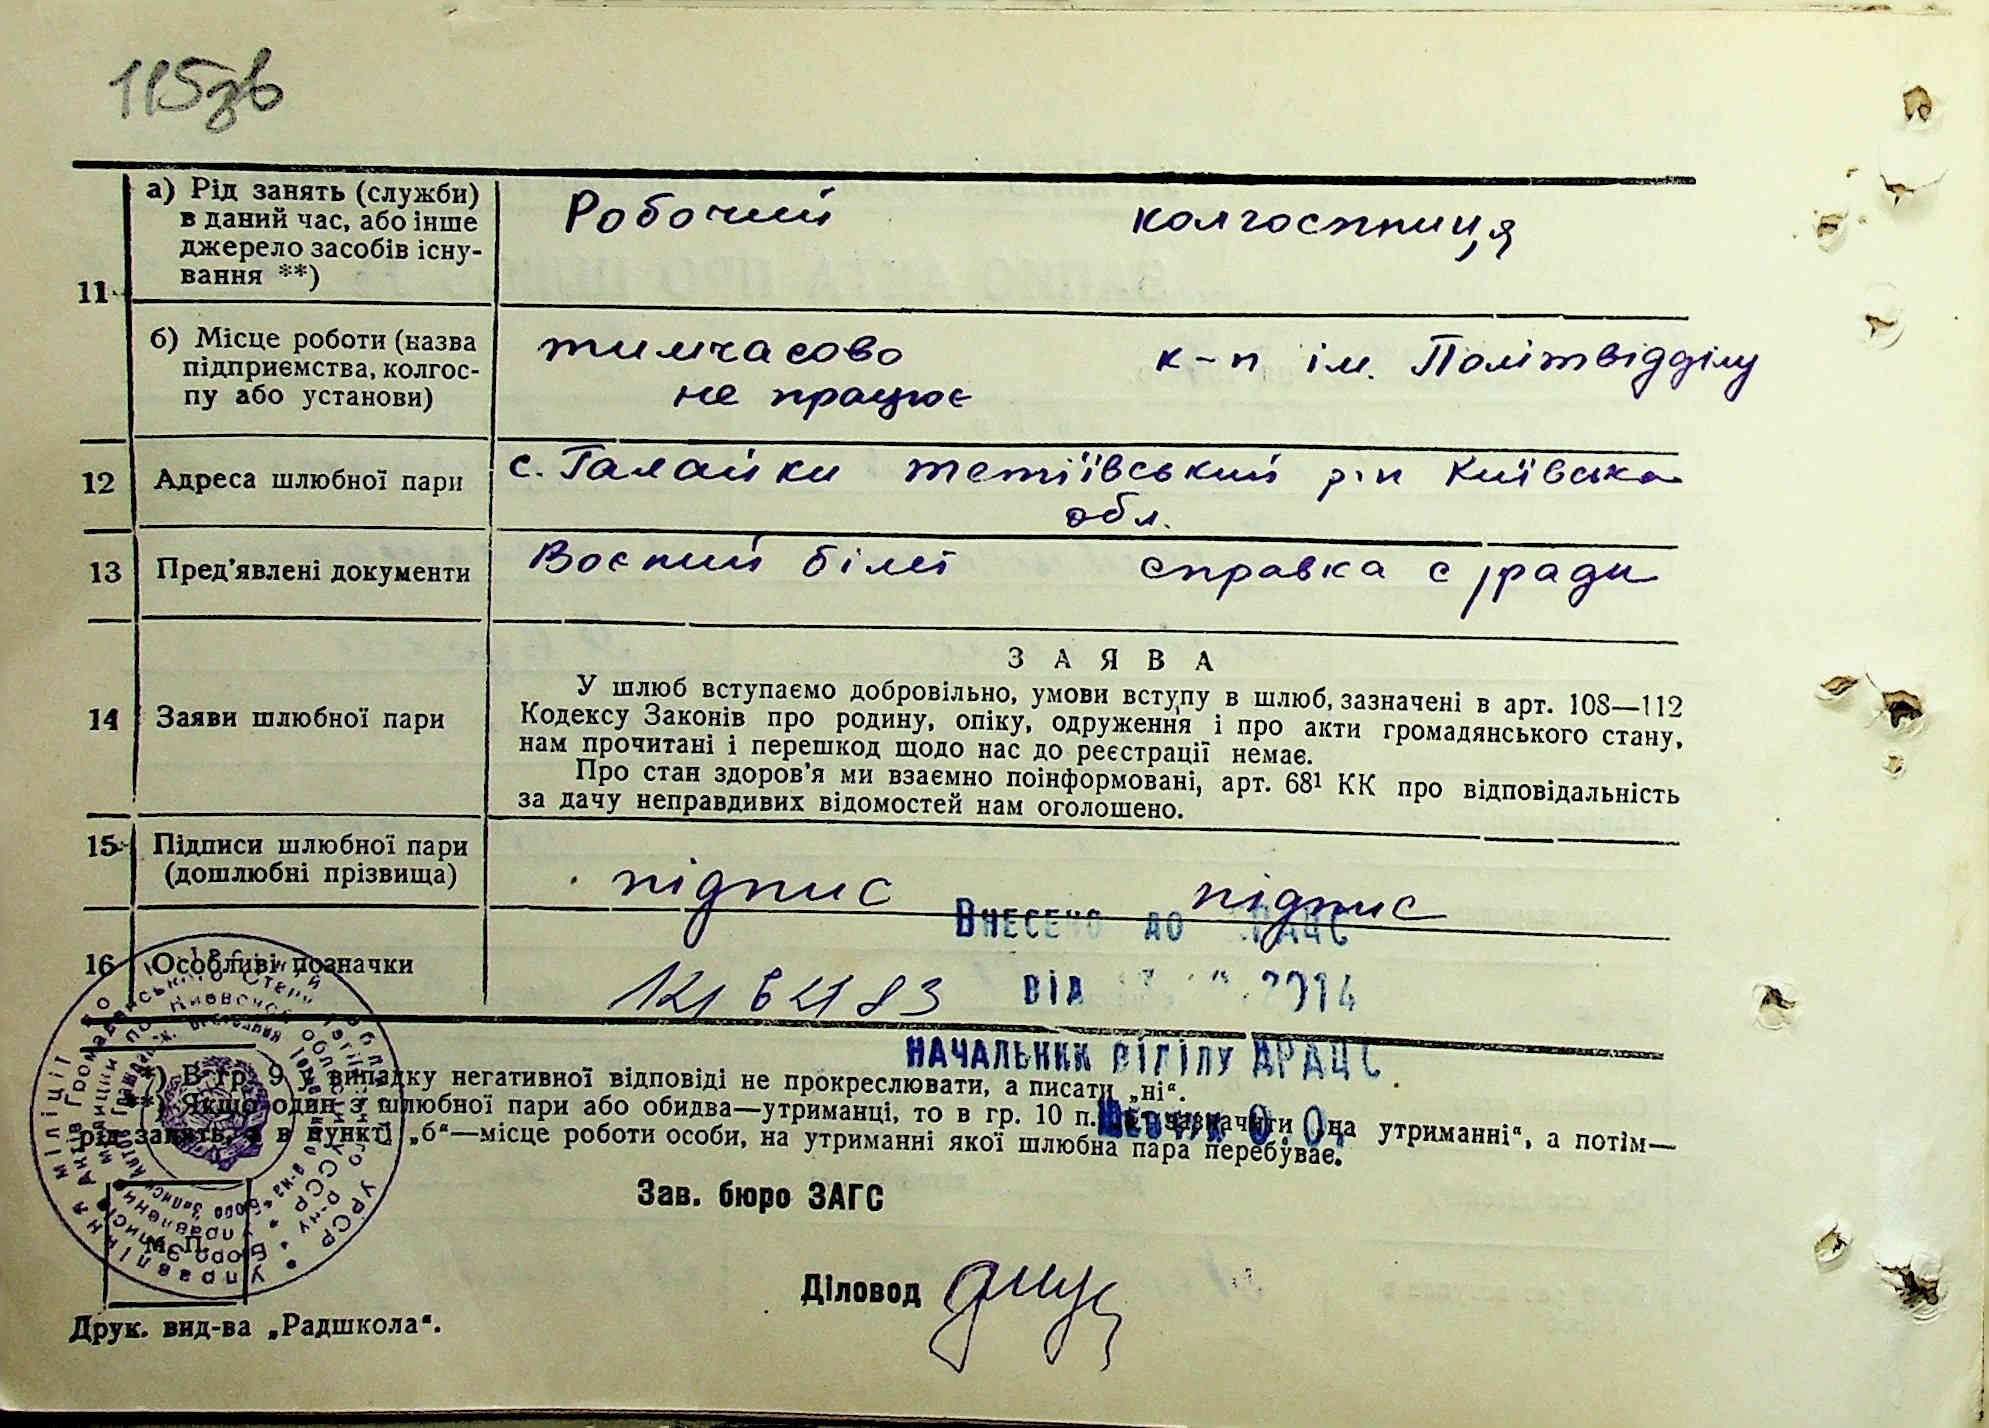 115зв
11
а) Рід занять (служби)
в даний час, або інше
джерело засобів існу-
вання **)
Робочий колгоспниця
б) Місце роботи (назва
підприємства, колгос-
пу або установи)
тимчасово
не працює
к-п ім. Політвідділу
12 Адреса шлюбної пари
с. Галайки тетіївський р-н Київська
обл.
13 Пред'явлені документи
Воєний білет справка с/ради
14 Заяви шлюбної пари
ЗАЯВА
У шлюб вступаємо добровільно, умови вступу в шлюб, зазначені в арт. 108—112
Кодексу Законів про родину, опіку, одруження і про акти громадянського стану,
нам прочитані і перешкод щодо нас до реєстрації немає.
Про стан здоров'я ми взаємно поінформовані, арт. 68¹ КК про відповідальність
за дачу неправдивих відомостей нам оголошено.
15 Підписи шлюбної пари
(дошлюбні прізвища)
підпис підпис
Внесено до ДРАЦС
16 Особливі позначки
від 2014
НАЧАЛЬНИК ВІДІЛУ ДРАЦС
*) В гр. 9 у випадку негативної відповіді не прокреслювати, а писати „ні“.
**) Якщо один з шлюбної пари або обидва—утриманці, то в гр. 10 п. зазначити „на утриманні“, а потім—
рід занять, а в пункті „б“—місце роботи особи, на утриманні якої шлюбна пара перебуває.
Шевчук О.О.
Зав. бюро ЗАГС
М. П.
Діловод
Друк. вид-ва „Радшкола“.